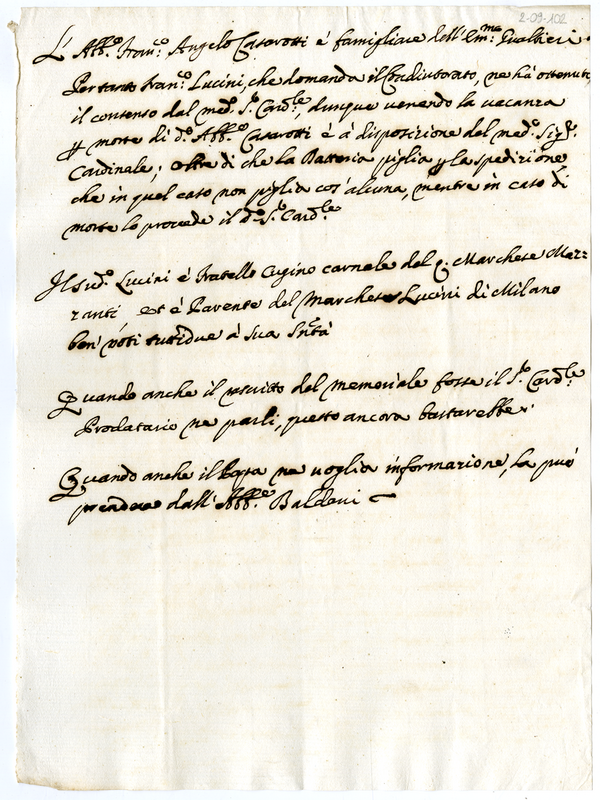 2-09-102
L'Abb.e Fran.co Angelo Casarotti é famigliare dell'Em.mo Gualtieri
Pertanto Fran.co Lucini, che domanda il Coadiutorato, ne hà ottenuto
il consenso dal med.o S.r Card.le, dunque venendo la vacanza
morte di d.o Abb.e Casarotti è à disposizione del med.o Sig.r
Cardinale; oltre di che la Datteria piglia la spedizione
che in quel caso non piglia cos'alcuna, mentre in caso di
morte lo procede il d.o S.r Card.le
Il sud.o Lucini é fratello Cugino carnale del Marchese Maz=
zanti et é Parente del Marchese Lucini di Milano
ben noti tutti due à Sua Sntà
Quando anche il rescritto del memoriale fosse il S.r Card.le
Prodatario ne parli, questo ancora bastarebbe.
Quando anche il Papa ne voglia informazione, la può
prendere dall'Abb.e Baldeni